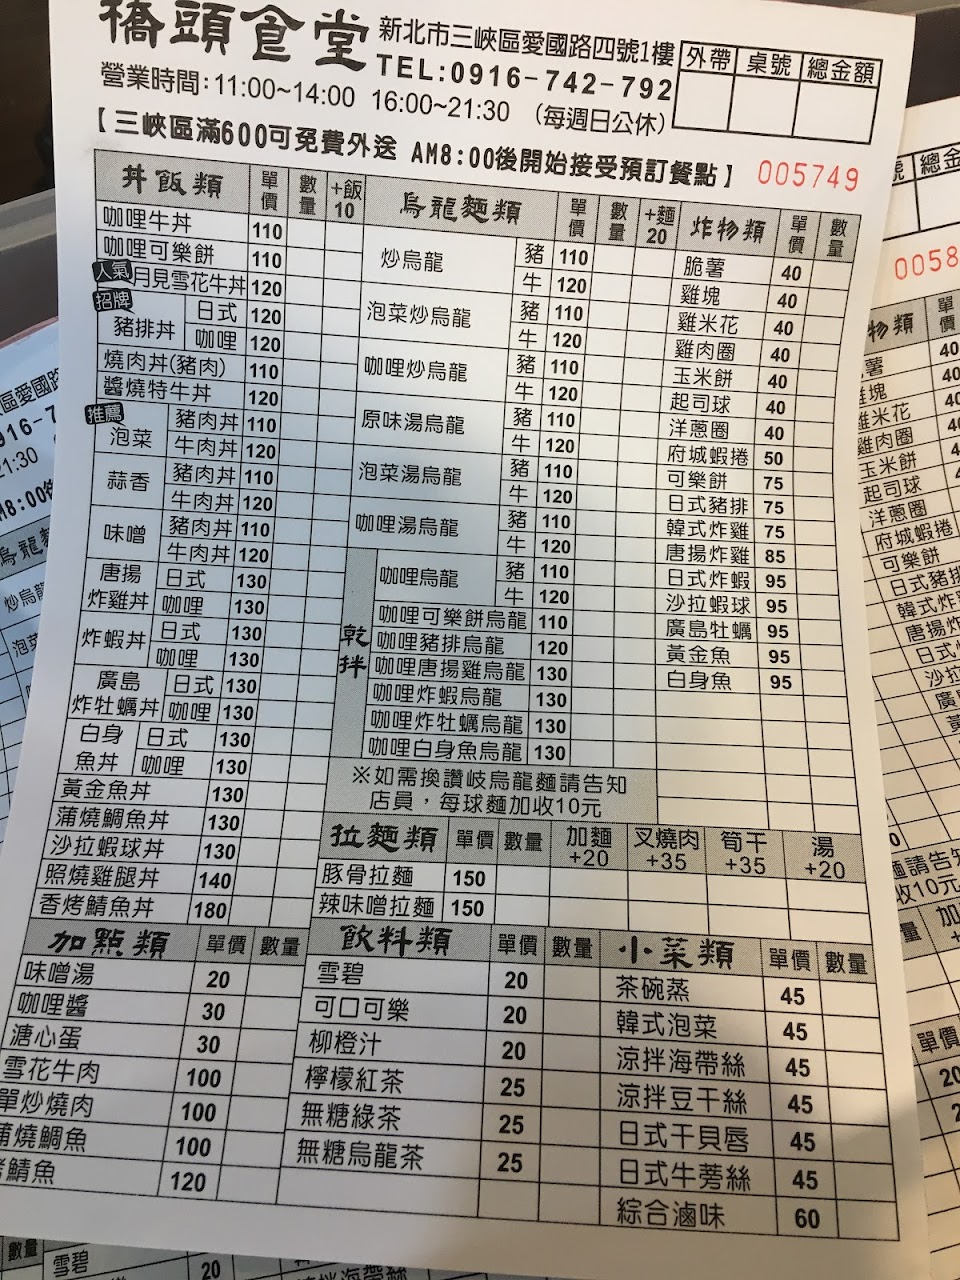 橋頭食堂
新北市三峽區愛國路四號1樓
TEL:0916-742-792
營業時間:11:00~14:00 16:00~21:30 (每週日公休)
外帶 桌號 總金額
【三峽區滿600可免費外送 AM8:00後開始接受預訂餐點】 005749
丼飯類 單價 數量 +飯10
咖哩牛丼 110
咖哩可樂餅 110
人氣 月見雪花牛丼 120
招牌 豬排丼 日式 120
咖哩 120
燒肉丼(豬肉) 110
醬燒特牛丼 120
推薦 泡菜 豬肉丼 110
牛肉丼 120
蒜香 豬肉丼 110
牛肉丼 120
味噌 豬肉丼 110
牛肉丼 120
唐揚炸雞丼 日式 130
咖哩 130
炸蝦丼 日式 130
咖哩 130
廣島炸牡蠣丼 日式 130
咖哩 130
白身魚丼 日式 130
咖哩 130
黃金魚丼 130
蒲燒鯛魚丼 130
沙拉蝦球丼 130
照燒雞腿丼 140
香烤鯖魚丼 180
烏龍麵類 單價 數量 +麵20
炒烏龍 豬 110
牛 120
泡菜炒烏龍 豬 110
牛 120
咖哩炒烏龍 豬 110
牛 120
原味湯烏龍 豬 110
牛 120
泡菜湯烏龍 豬 110
牛 120
咖哩湯烏龍 豬 110
牛 120
乾拌
咖哩烏龍 豬 110
牛 120
咖哩可樂餅烏龍 110
咖哩豬排烏龍 120
咖哩唐揚雞烏龍 130
咖哩炸蝦烏龍 130
咖哩炸牡蠣烏龍 130
咖哩白身魚烏龍 130
※如需換讚岐烏龍麵請告知
店員,每球麵加收10元
炸物類 單價 數量
脆薯 40
雞塊 40
雞米花 40
雞肉圈 40
玉米餅 40
起司球 40
洋蔥圈 40
府城蝦捲 50
可樂餅 75
日式豬排 75
韓式炸雞 75
唐揚炸雞 85
日式炸蝦 95
沙拉蝦球 95
廣島牡蠣 95
黃金魚 95
白身魚 95
拉麵類 單價 數量 加麵+20 叉燒肉+35 筍干+35 湯+20
豚骨拉麵 150
辣味噌拉麵 150
加點類 單價 數量
味噌湯 20
咖哩醬 30
溏心蛋 30
雪花牛肉 100
單炒燒肉 100
蒲燒鯛魚 100
烤鯖魚 120
飲料類 單價 數量
雪碧 20
可口可樂 20
柳橙汁 20
檸檬紅茶 25
無糖綠茶 25
無糖烏龍茶 25
小菜類 單價 數量
茶碗蒸 45
韓式泡菜 45
涼拌海帶絲 45
涼拌豆干絲 45
日式干貝唇 45
日式牛蒡絲 45
綜合滷味 60